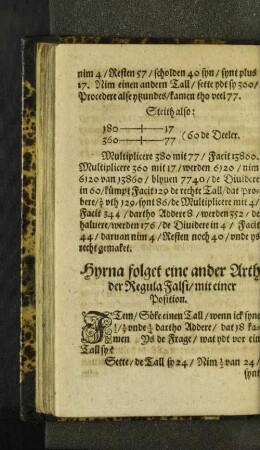 nim 4 / Resten 57 / scholden 40 syn / synt plus
17. Nim einen andern Tall / sette ydt sy 360 /
Procedere alse yzundes / kamen tho veel 77.
Steith also:
180 17
360 77 (60 de Deeler.
Multiplicere 380 mit 77 / Facit 13860.
Multiplicere 360 mit 17 / werden 6120 / nim
6120 van 13860 / blyuen 7740 / de Diuidere
in 60 / kümpt Facit 129 de rechte Tall / dat pro-
bere / ⅔ vth 129 / synt 86 / de Multiplicere mit 4 /
Facit 344 / dartho Addere 8 / werden 352 / de
haluere / werden 176 / de Diuidere in 4 / Facit
44 / daruan nim 4 / Resten noch 40 / vnde ys
recht gemaket.
Hyrna folget eine ander Arth
der Regula Falsi / mit einer
Position.
ITem / Söke einen Tall / wenn ick syne
vnde dartho Addere / dat 18 ka-
men Ys de Frage / wat ydt vor ein
Tall sy?
Sette / de Tall sy 24 / Nim ½ van 24 /
synt